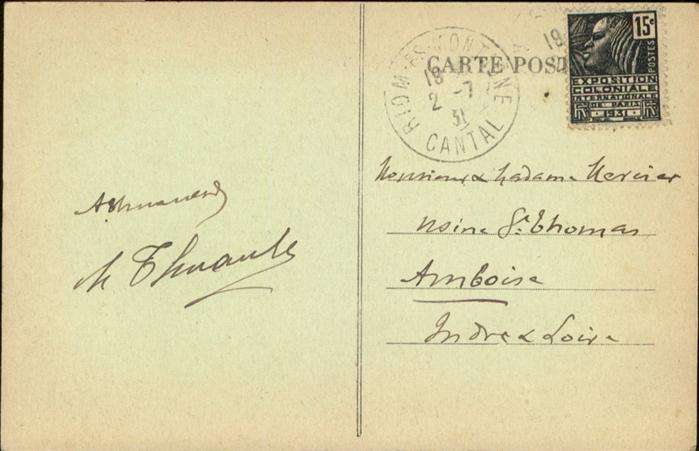 CARTE POST
RIOM-ES-MONTAGNE
18
2 -7
31
CANTAL
18
15c
POSTES
EXPOSITION
COLONIALE
INTERNATIONALE
DE PARIS
1931
Monsieur & Madame Mercier
Usine St Thomas
Amboise
Indre & Loire